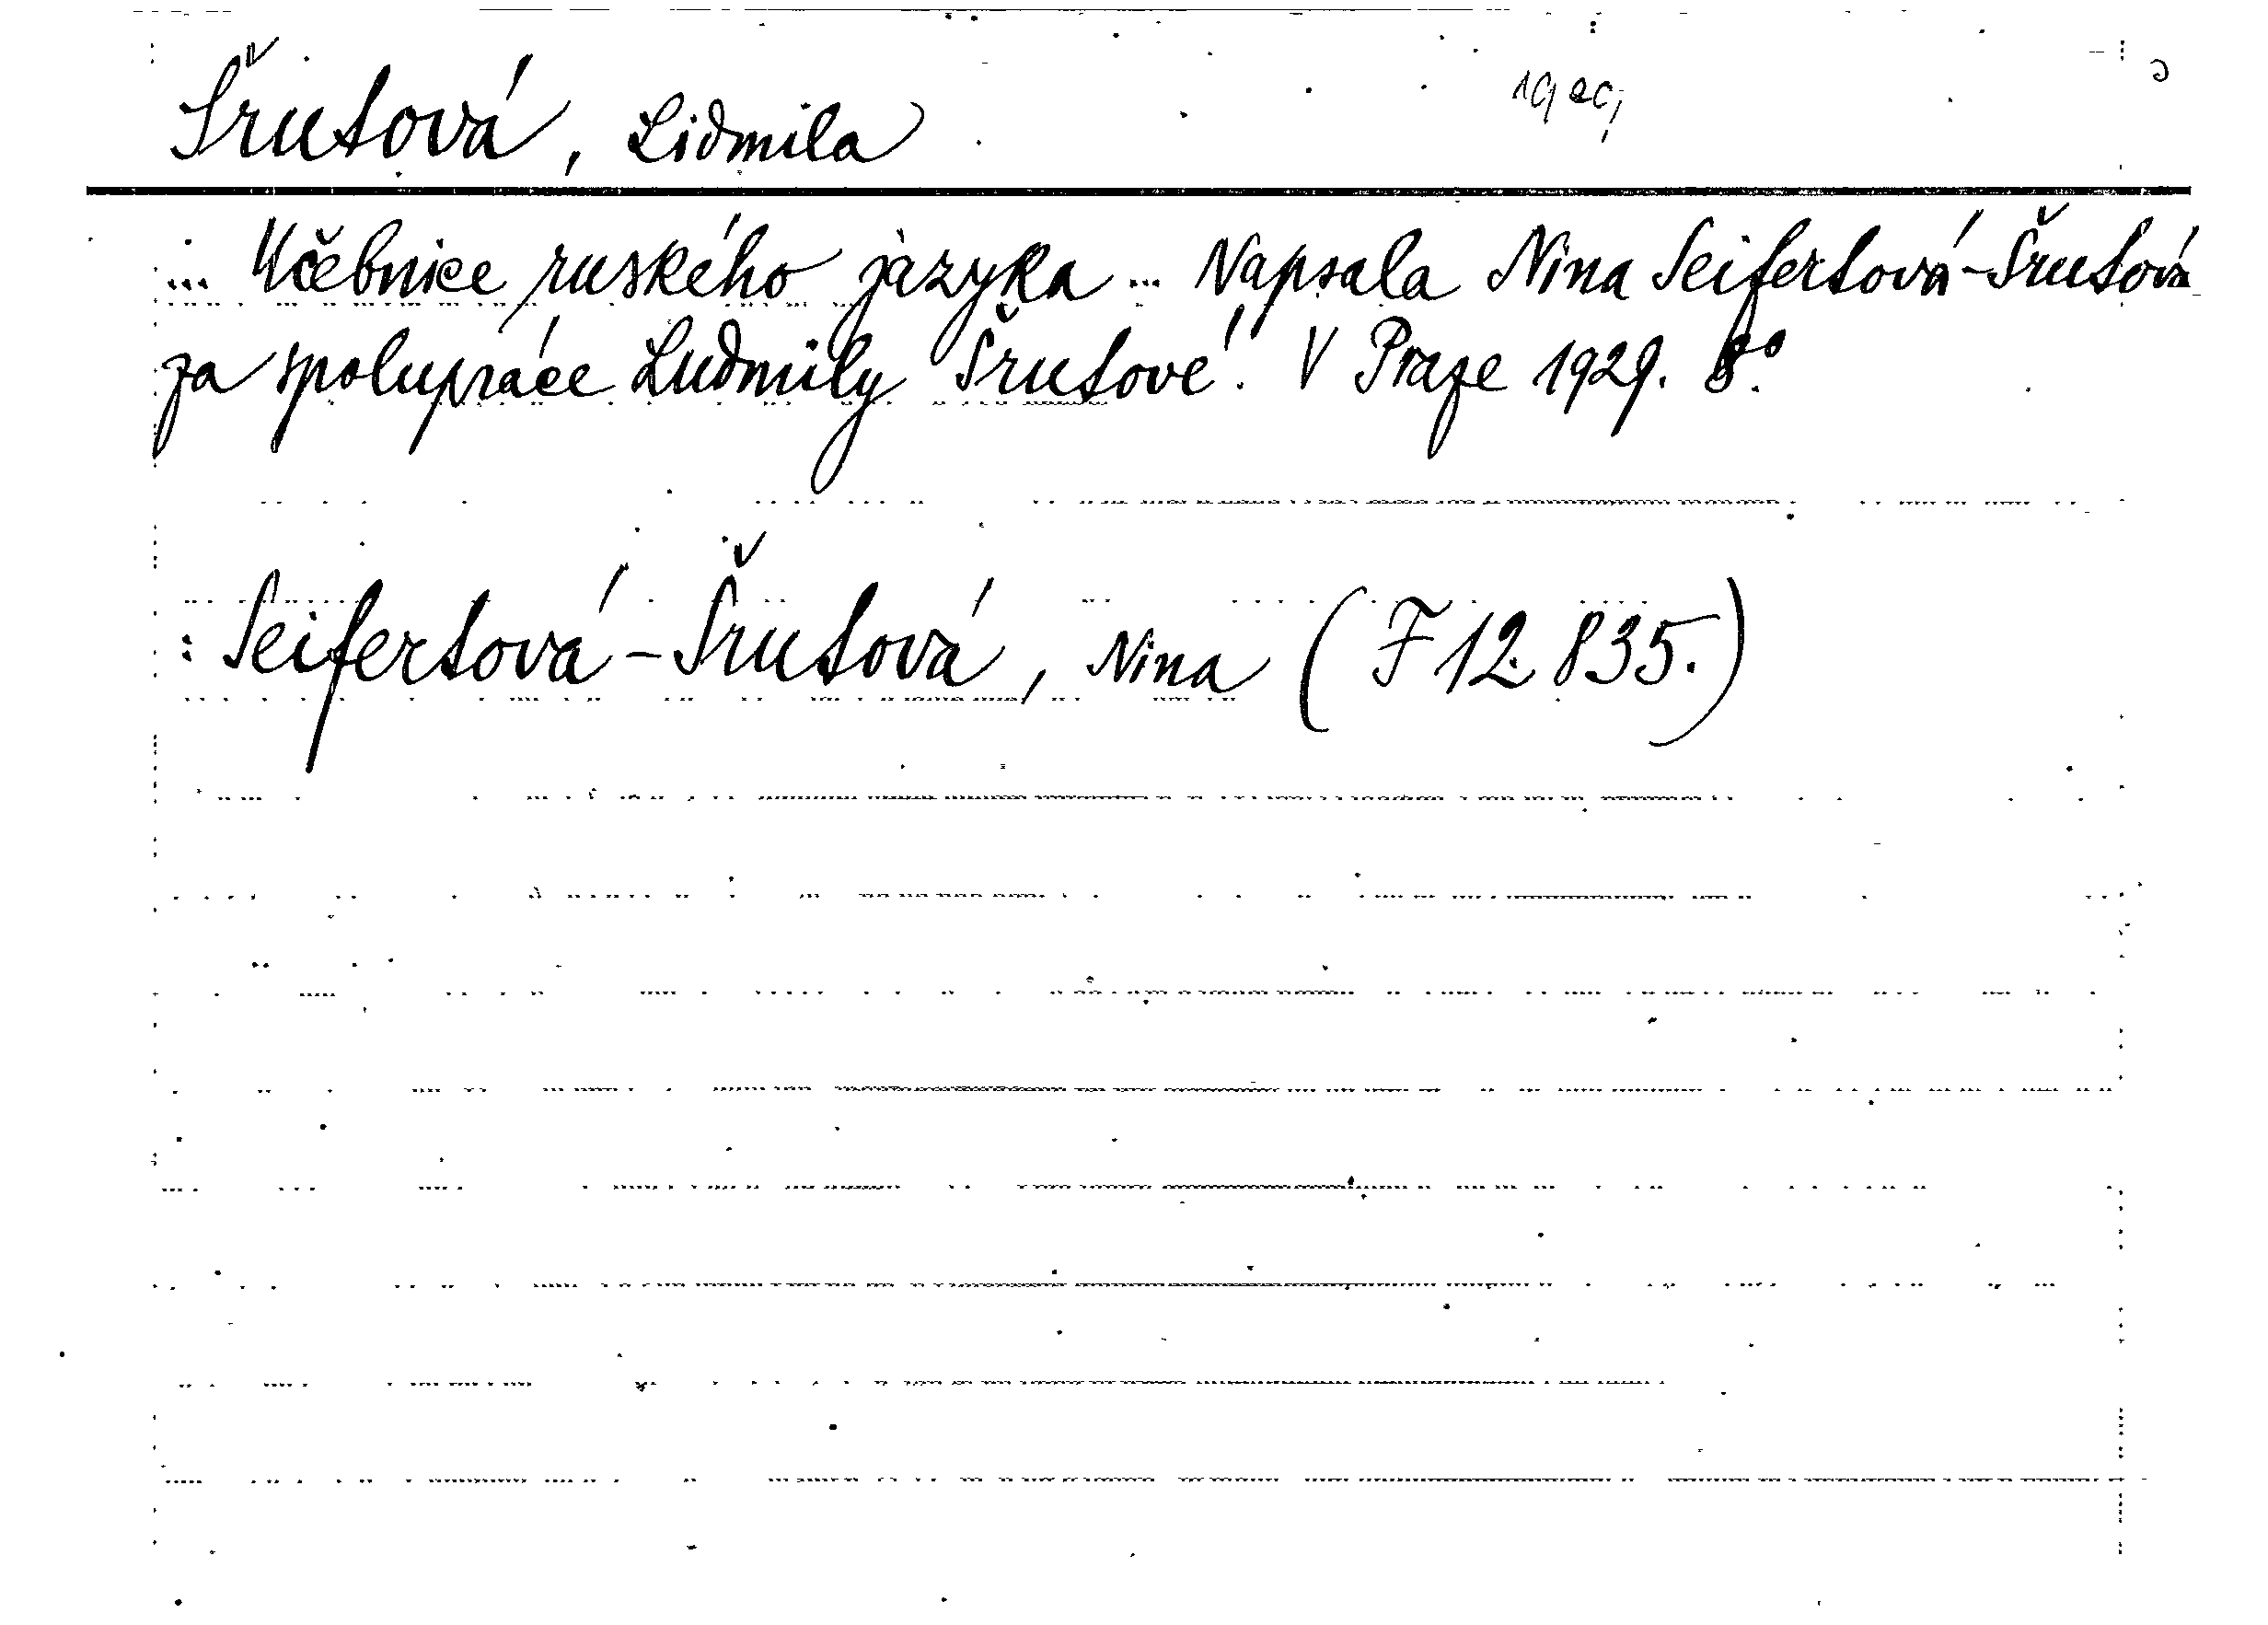 Šrutová, Lidmila
1929
... Učebnice ruského jazyka ... Napsala Nina Seifertová-Šrutová
za spolupráce Ludmily Šrutové. V Praze 1929. 8°.
: Seifertová-Šrutová, Nina (F 12.835.)